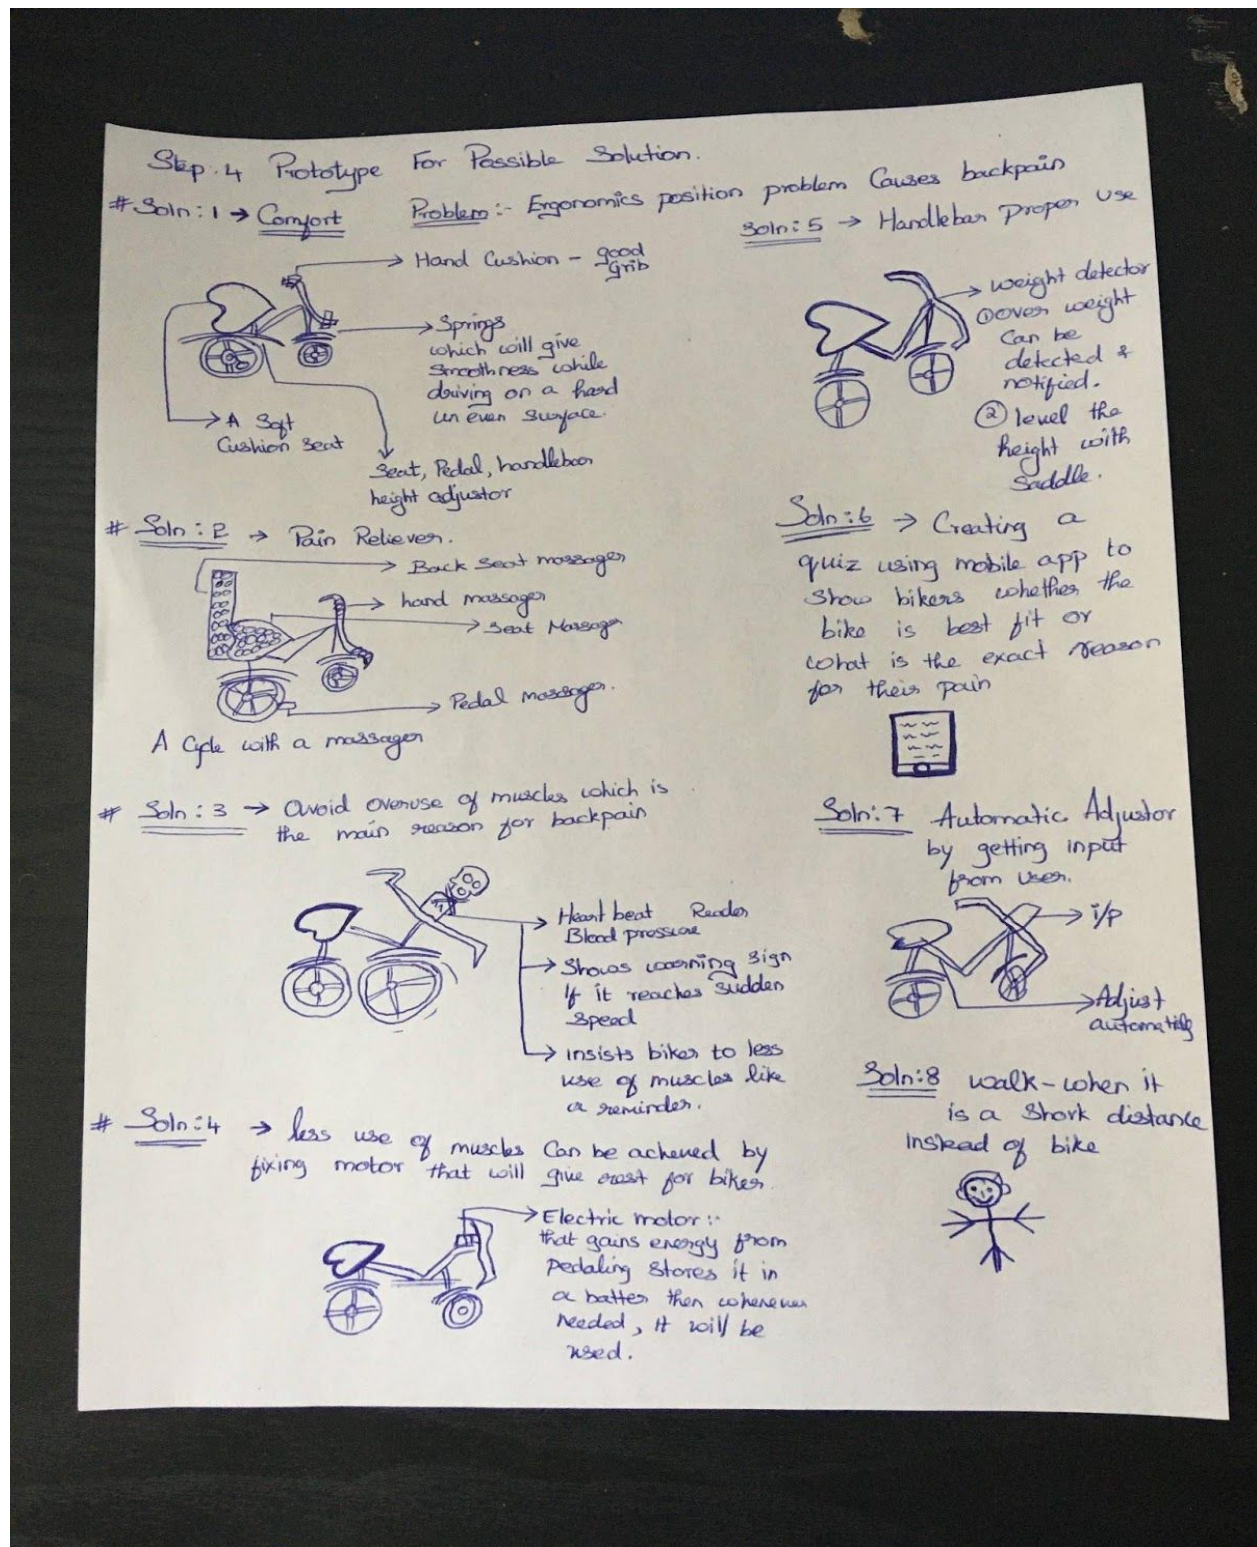 Step. 4 Prototype For Possible Solution.
# Soln : 1 → Comfort Problem :- Ergonomics position problem Causes backpain
Hand Cushion - good
Grib
Springs
which will give
Smoothness while
driving on a hard
un even Surface.
A Soft
Cushion Seat
Seat, Pedal, handlebar
height adjustor
# Soln : 2 → Pain Reliever.
Back Seat massager
hand massager
Seat Massager
Pedal massager.
A Cycle with a massager
# Soln : 3 → avoid overuse of muscles which is
the main reason for backpain
Heart beat Reader
Blood pressure
Shows warning sign
If it reaches sudden
speed
insists biker to less
use of muscles like
a reminder.
# Soln : 4 → less use of muscles Can be acheved by
fixing motor that will give rest for biker.
Electric motor :-
that gains energy from
Pedaling Stores it in
a batter then whenever
needed, it will be
used.
Soln : 5 → Handlebar Proper use
weight detector
① over weight
Can be
detected &
notified.
② level the
height with
Saddle.
Soln : 6 → Creating a
quiz using mobile app to
Show bikers whether the
bike is best fit or
what is the exact reason
for their pain
Soln : 7 Automatic Adjustor
by getting input
from user.
i/p
Adjust
Soln : 8 walk - when it
is a Shork distance
instead of bike